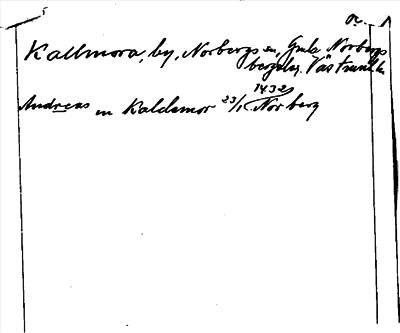 or
Kallmora, by, Norbergs sn, Gmla Norbergs
bergslag. Västmanl. l.
1432
Andreas in Kaldamor 23/1 Norberg